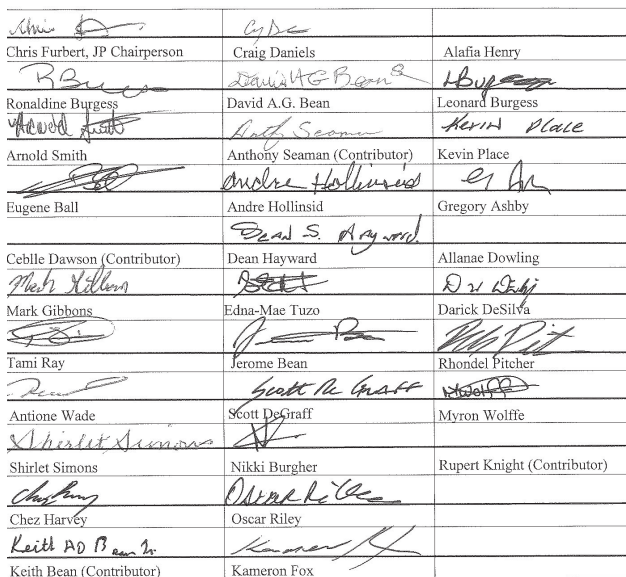 Chris
Chris Furbert, JP Chairperson Craig Daniels Alafia Henry
RBurgess David A G Bean LBurgess
Ronaldine Burgess David A.G. Bean Leonard Burgess
Arnold Smith Anty Seaman Kevin Place
Arnold Smith Anthony Seaman (Contributor) Kevin Place
Andre Hollinsid
Eugene Ball Andre Hollinsid Gregory Ashby
Dean S. Hayward
Ceblle Dawson (Contributor) Dean Hayward Allanae Dowling
Mark Gibbons
Mark Gibbons Edna-Mae Tuzo Darick DeSilva
Tami Ray Jerome Bean Rhondel Pitcher
Scott De Graff
Antione Wade Scott DeGraff Myron Wolffe
Shirlet Simons
Shirlet Simons Nikki Burgher Rupert Knight (Contributor)
Oscar Riley
Chez Harvey Oscar Riley
Keith AD Bean Jr.
Keith Bean (Contributor) Kameron Fox